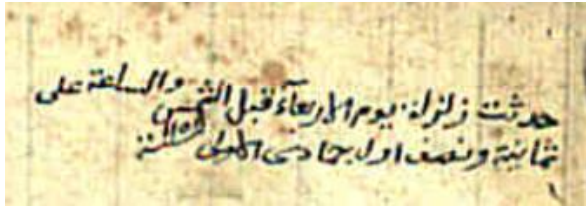 حدثت زلزلة يوم الاربعآء قبل الشمس والساعة على
ثمانية ونصف اول جمادى الاولى سنة